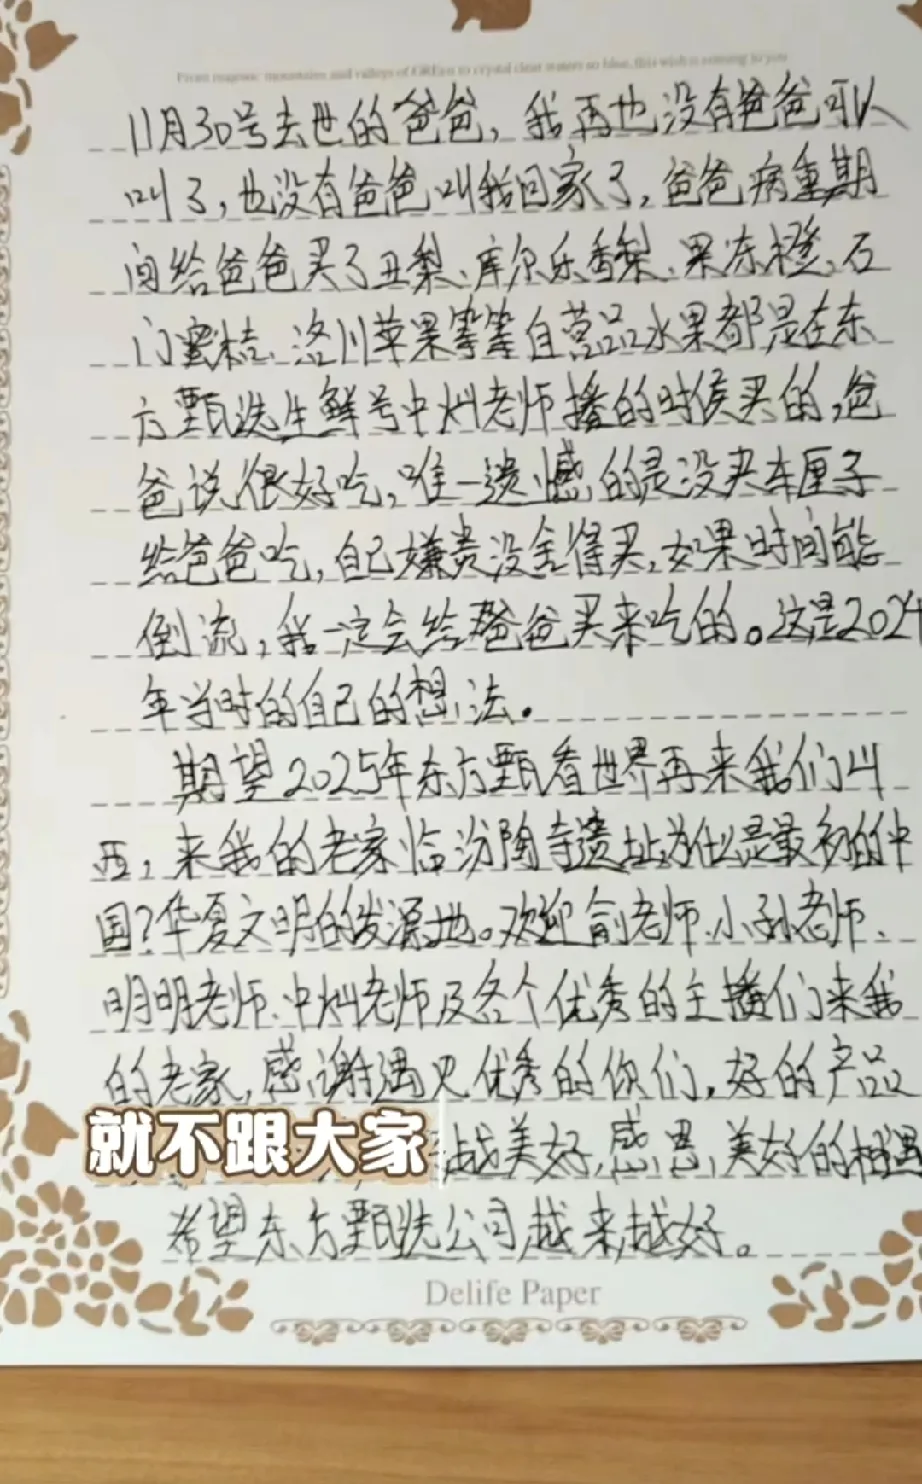 From majestic mountains and valleys of GREen to crystal clear waters so blue, this wish is coming to you
11月30号去世的爸爸，我再也没有爸爸可以
叫了，也没有爸爸叫我回家了，爸爸病重期
间给爸爸买了丑梨、库尔乐香梨、果冻橙、石
门蜜桔、洛川苹果等等自营品水果都是在东
方甄选生鲜号中灿老师播的时候买的，爸
爸说很好吃，唯一遗憾的是没买车厘子
给爸爸吃，自己嫌贵没舍得买，如果时间能
倒流，我一定会给爸爸买来吃的。这是2024
年当时的自己的想法。
期望2025年东方甄看世界再来我们山
西，来我的老家临汾陶寺遗址为什么是最初的中
国？华夏文明的发源地。欢迎俞老师、小孙老师、
明明老师、中灿老师及各个优秀的主播们来我
的老家，感谢遇见优秀的你们，好的产品
就不跟大家
战美好，感恩，美好的相遇
希望东方甄选公司越来越好。
Delife Paper